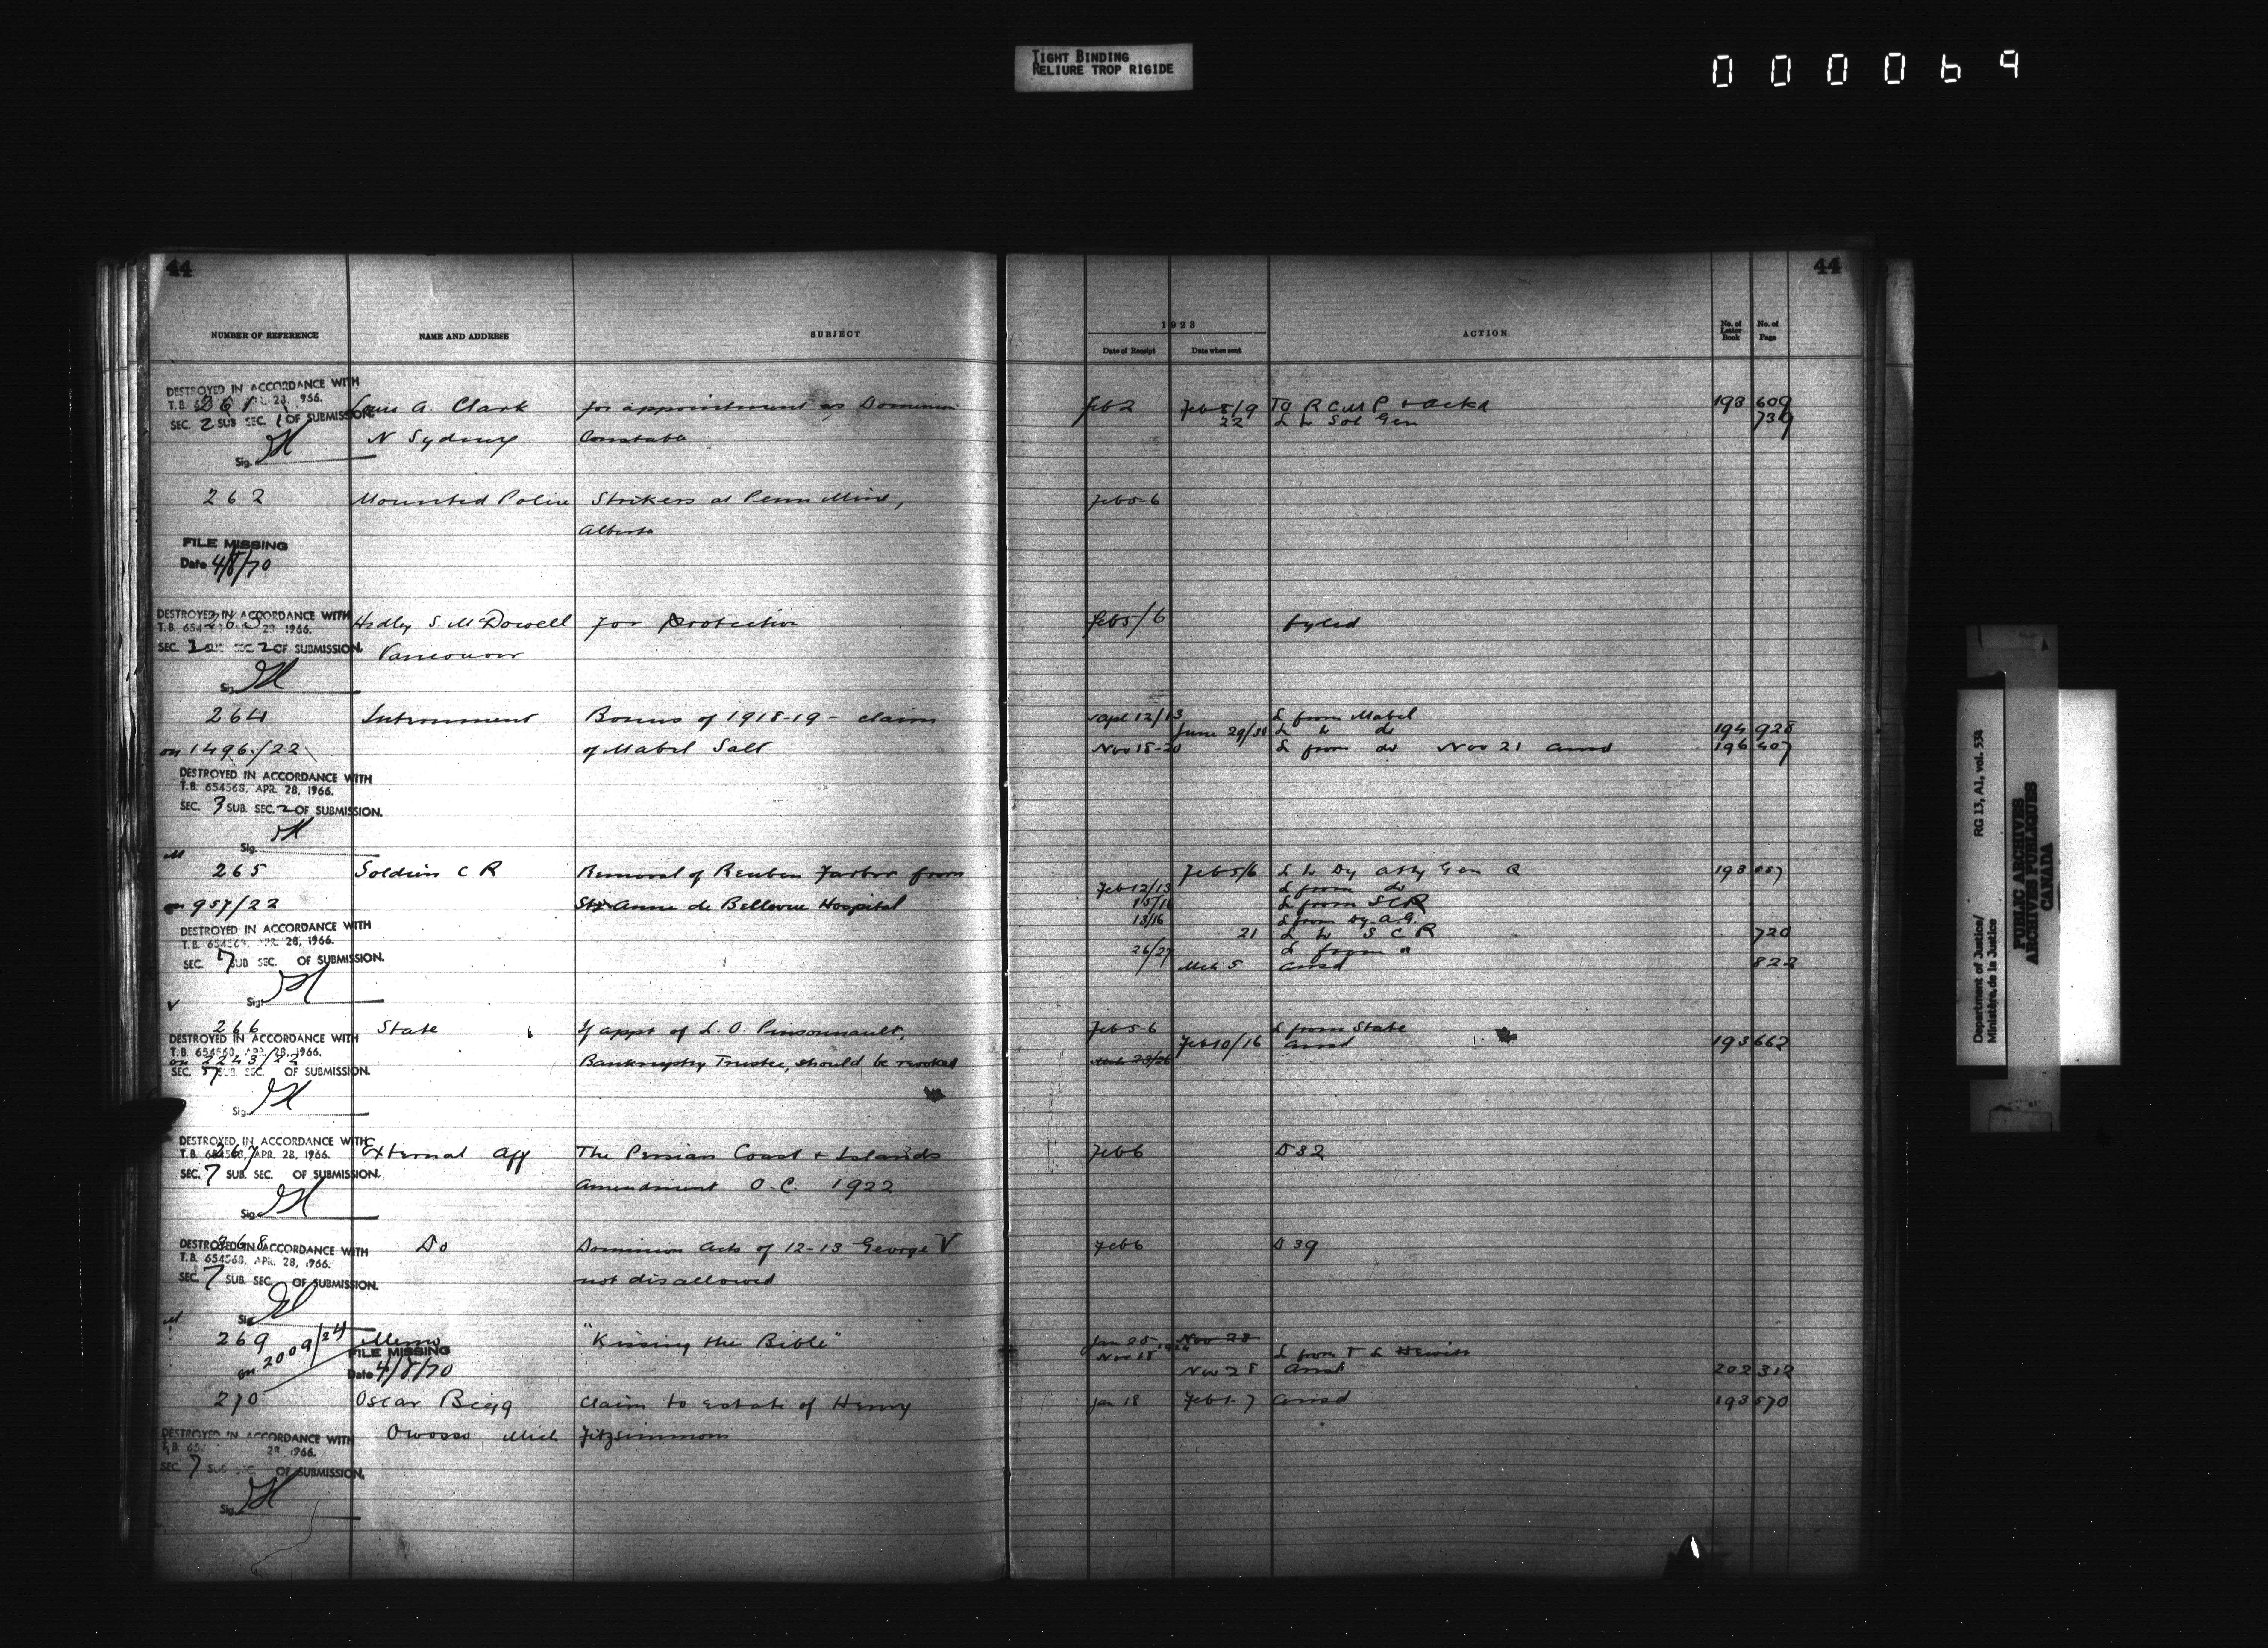 TIGHT BINDING
RELIURE TROP RIGIDE
000069
44
44
NUMBER OF REFERENCE NAME AND ADDRESS SUBJECT
1923
Date of Receipt Date when sent ACTION No. of Letter Book No. of Page
DESTROYED IN ACCORDANCE WITH
261 Louis A. Clark for appointment as Dominion Feb 2 Feb 8/9 To R C M P & ackd 193 609
SEC. 2 SUB SEC. 1 OF SUBMISSION. 22 L to Sol Gen 739
N Sydney Constable
Sig.
262 Mounted Police Strikers at Penn Mine, Feb 5-6
Alberta
FILE MISSING
Date 4/8/70
DESTROYED IN ACCORDANCE WITH
263 Hedley S. McDowell for protection Feb 5/6 fyled
SEC. SUB SEC. 2 OF SUBMISSION.
Vancouver
Sig.
264 Internment Bonus of 1918-19 - claim Apl 12/13 L from Mabel
June 29/30 L to do 194 928
on 1496/22 of Mabel Salt Nov 18-20 L from do Nov 21 ansd 196 407
DESTROYED IN ACCORDANCE WITH
T.B. 654568, APR. 28, 1966.
SEC. 3 SUB. SEC. 2 OF SUBMISSION.
Sig.
265 Soldiers C R Removal of Reuben from Feb 5/6 L to Dy Atty Gen Q 193
Feb 12/13 L from do
on 957/22 Ste Anne de Bellevue Hospital 15/16 L from SCR
13/16 L from Dy. A.G.
DESTROYED IN ACCORDANCE WITH
T.B. 654568, APR. 28, 1966. 21 L to S C R 720
26/27 L from "
SEC. 7 SUB SEC. OF SUBMISSION. Mch 5 ansd 822
Sig.
266 State If appt of L. O. Pinsonnault, Feb 5-6 L from State
DESTROYED IN ACCORDANCE WITH
Feb 10/16 ansd 193 662
on 2243/22 Bankruptcy Trustee, should be revoked
SEC. 7 SUB. SEC. OF SUBMISSION.
Sig.
DESTROYED IN ACCORDANCE WITH
267 External Aff The Persian Coast & Islands Feb 6 D 32
T.B. 654568, APR. 28, 1966.
SEC. 7 SUB. SEC. OF SUBMISSION.
Amendment O.C. 1922
Sig.
268 Do Dominion Acts of 12-13 George V Feb 6 D 39
DESTROYED IN ACCORDANCE WITH
T.B. 654568, APR. 28, 1966.
SEC. 7 SUB. SEC. OF SUBMISSION.
not disallowed
Sig.
269 Memo "Kissing the Bible" Jan 25 Nov 28
on 2009/24 Nov 18 1924 L from T L Hewitt
FILE MISSING
Date 4/8/70 Nov 28 Ansd 202 312
270 Oscar Begg Claim to estate of Henry Jan 18 Feb 1-7 ansd 193 570
Owosso Mich Fitzsimmons
DESTROYED IN ACCORDANCE WITH
SEC. 7 SUB SEC. OF SUBMISSION.
Sig.
Department of Justice/ RG 13, A1, vol. 534
Ministère de la Justice
PUBLIC ARCHIVES
ARCHIVES PUBLIQUES
CANADA